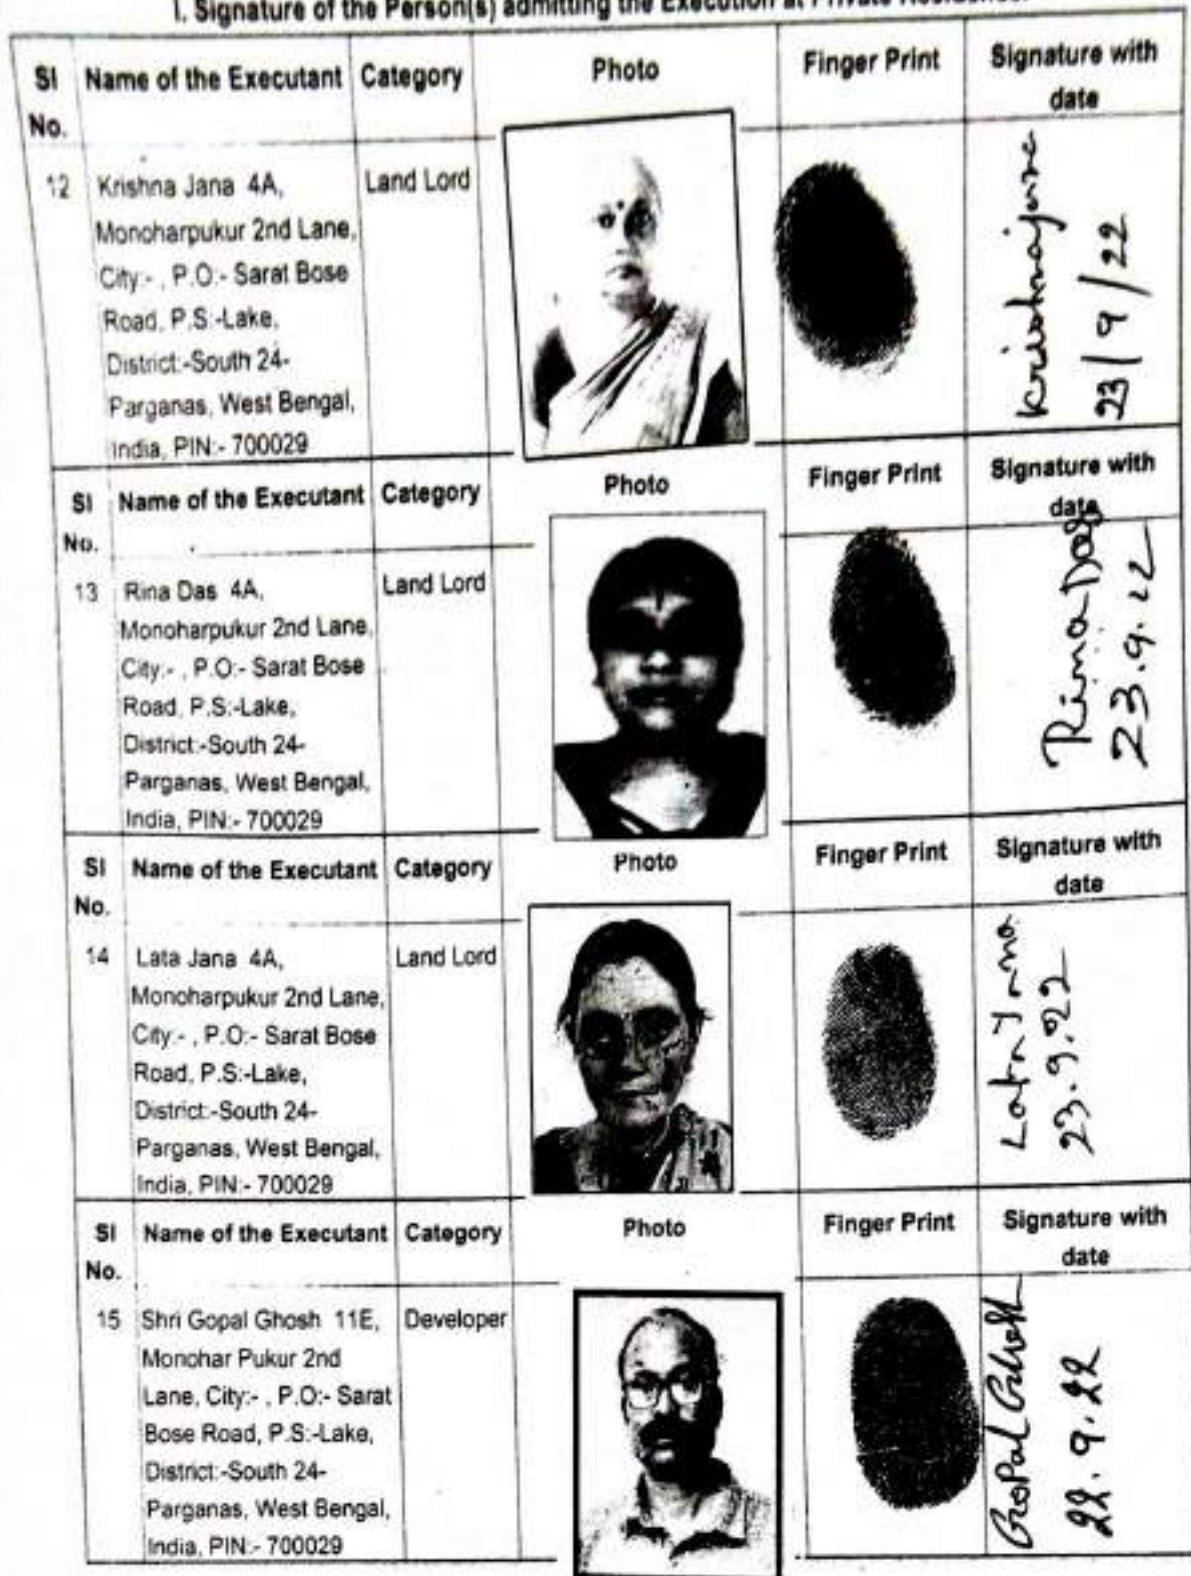 I. Signature of the Person(s) admitting the Execution at Private Residence.
Sl No. Name of the Executant Category Photo Finger Print Signature with date
12 Krishna Jana 4A, Land Lord
Monoharpukur 2nd Lane,
City:- , P.O:- Sarat Bose
Road, P.S:-Lake,
District:-South 24-
Parganas, West Bengal,
India, PIN:- 700029
Krishnajana
23/9/22
Sl No. Name of the Executant Category Photo Finger Print Signature with date
13 Rina Das 4A, Land Lord
Monoharpukur 2nd Lane,
City:- , P.O:- Sarat Bose
Road, P.S:-Lake,
District:-South 24-
Parganas, West Bengal,
India, PIN:- 700029
Rina Das
23.9.22
Sl No. Name of the Executant Category Photo Finger Print Signature with date
14 Lata Jana 4A, Land Lord
Monoharpukur 2nd Lane,
City:- , P.O:- Sarat Bose
Road, P.S:-Lake,
District:-South 24-
Parganas, West Bengal,
India, PIN:- 700029
Lata Jana
23.9.22
Sl No. Name of the Executant Category Photo Finger Print Signature with date
15 Shri Gopal Ghosh 11E, Developer
Monohar Pukur 2nd
Lane, City:- , P.O:- Sarat
Bose Road, P.S:-Lake,
District:-South 24-
Parganas, West Bengal,
India, PIN:- 700029
Gopal Ghosh
22.9.22